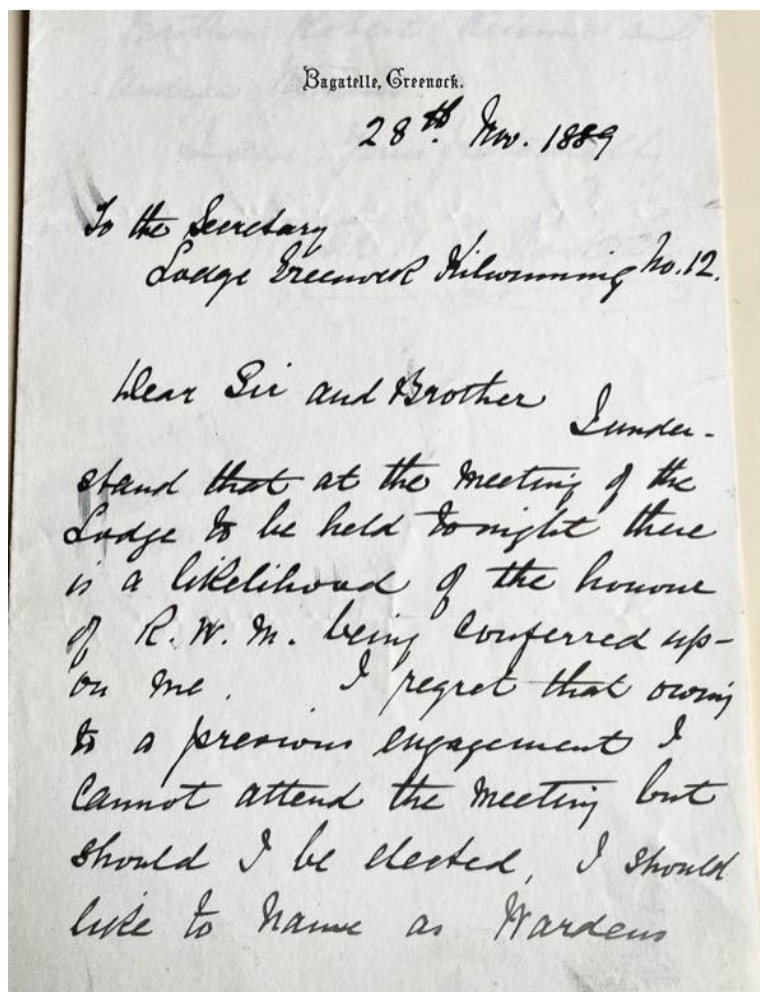 Bagatelle, Greenock.
28th Nov. 1889
To the Secretary
Lodge Greenock Kilwinning No. 12.
Dear Sir and Brother
I under-
stand that at the meeting of the
Lodge to be held tonight there
is a likelihood of the honour
of R. W. M. being conferred up-
on me. I regret that owing
to a previous engagement I
cannot attend the meeting but
should I be elected, I should
like to name as Wardens